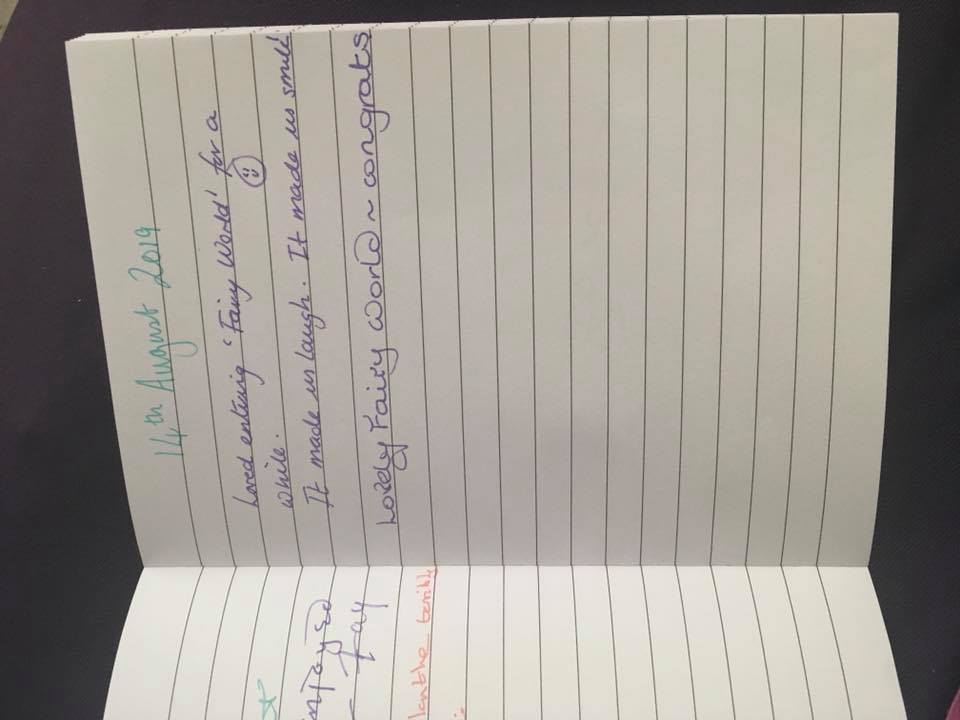 14th August 2019
Loved entering 'Fairy World' for a
while. ☺
It made us laugh. It made us smile.
Lovely Fairy World ~ congrats
enjoyed
- Fay
terrible